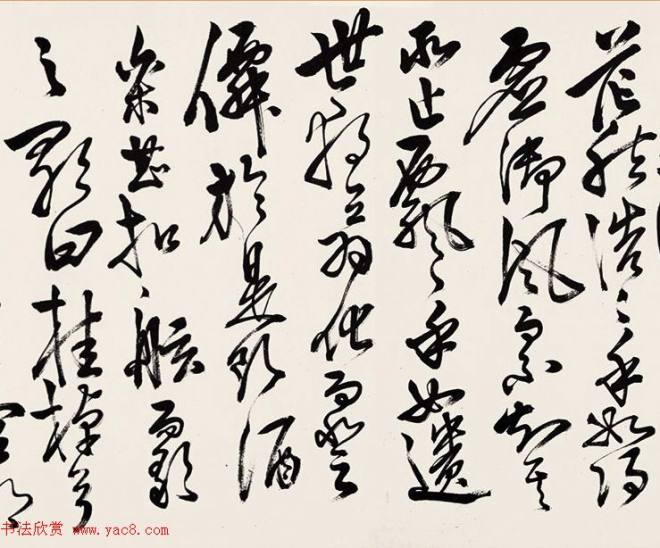 茫然浩浩乎如馮
虚御風而不知其
所止飄飄乎如遺
世獨立羽化而登
僊於是飲酒
樂甚扣舷而歌
之歌曰桂棹兮
空明
书法欣赏 www.yac8.com